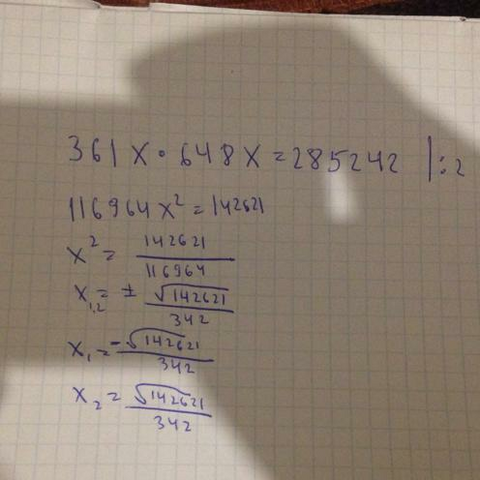 361 x · 648 x = 285242 |:2
116964 x² = 142621
x² = 142621/116964
x₁,₂ = ± √142621/342
x₁ = -√142621/342
x₂ = √142621/342